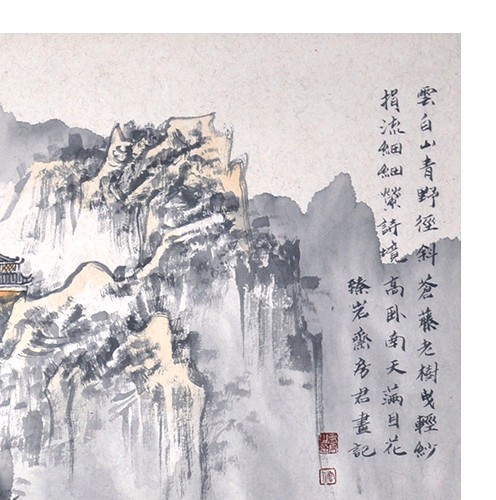 雲白山青野徑斜蒼藤老樹曳輕紗
捐流細細縈詩境高臥南天滿目花
臻岩齋房君畫記